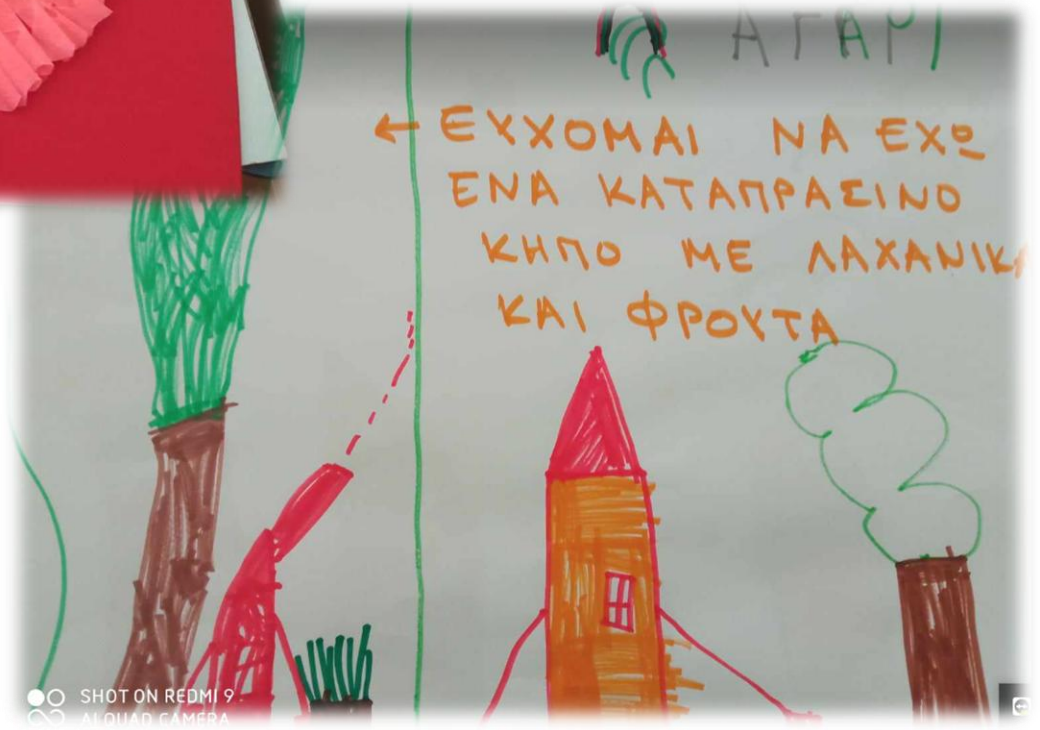 ΑΓΑΡΙ
← ΕΥΧΟΜΑΙ ΝΑ ΕΧΩ
ΕΝΑ ΚΑΤΑΠΡΑΣΙΝΟ
ΚΗΠΟ ΜΕ ΛΑΧΑΝΙΚΑ
ΚΑΙ ΦΡΟΥΤΑ
SHOT ON REDMI 9
AI QUAD CAMERA